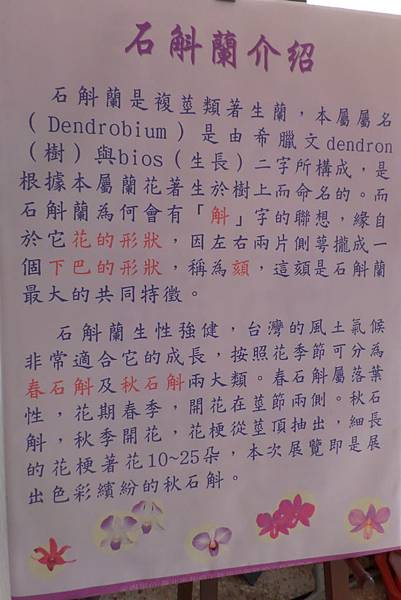 石斛蘭介紹
石斛蘭是複莖類著生蘭，本屬屬名
（Dendrobium）是由希臘文dendron
（樹）與bios（生長）二字所構成，是
根據本屬蘭花著生於樹上而命名的。而
石斛蘭為何會有「斛」字的聯想，緣自
於它花的形狀，因左右兩片側萼攏成一
個下巴的形狀，稱為頦，這頦是石斛蘭
最大的共同特徵。
石斛蘭生性強健，台灣的風土氣候
非常適合它的成長，按照花季節可分為
春石斛及秋石斛兩大類。春石斛屬落葉
性，花期春季，開花在莖節兩側。秋石
斛，秋季開花，花梗從莖頂抽出，細長
的花梗著花10~25朵，本次展覽即是展
出色彩繽紛的秋石斛。